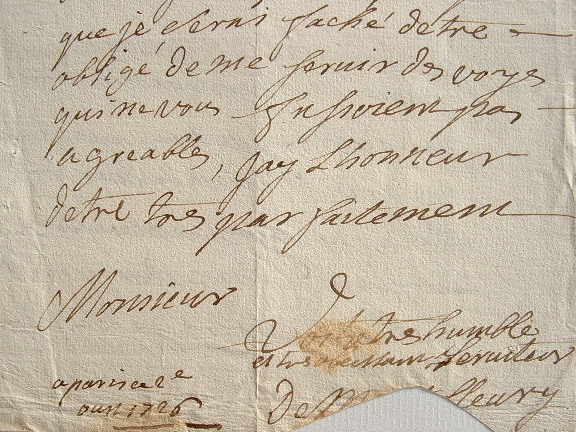 que je serai faché detre
obligé de me servir des voyes
qui ne vous fussient pas
agreables, Jay Lhonneur
detre tres parfaitement
Monsieur
Votre tres humble
et tres serviteur
a paris ce 2e
1726
De fleury